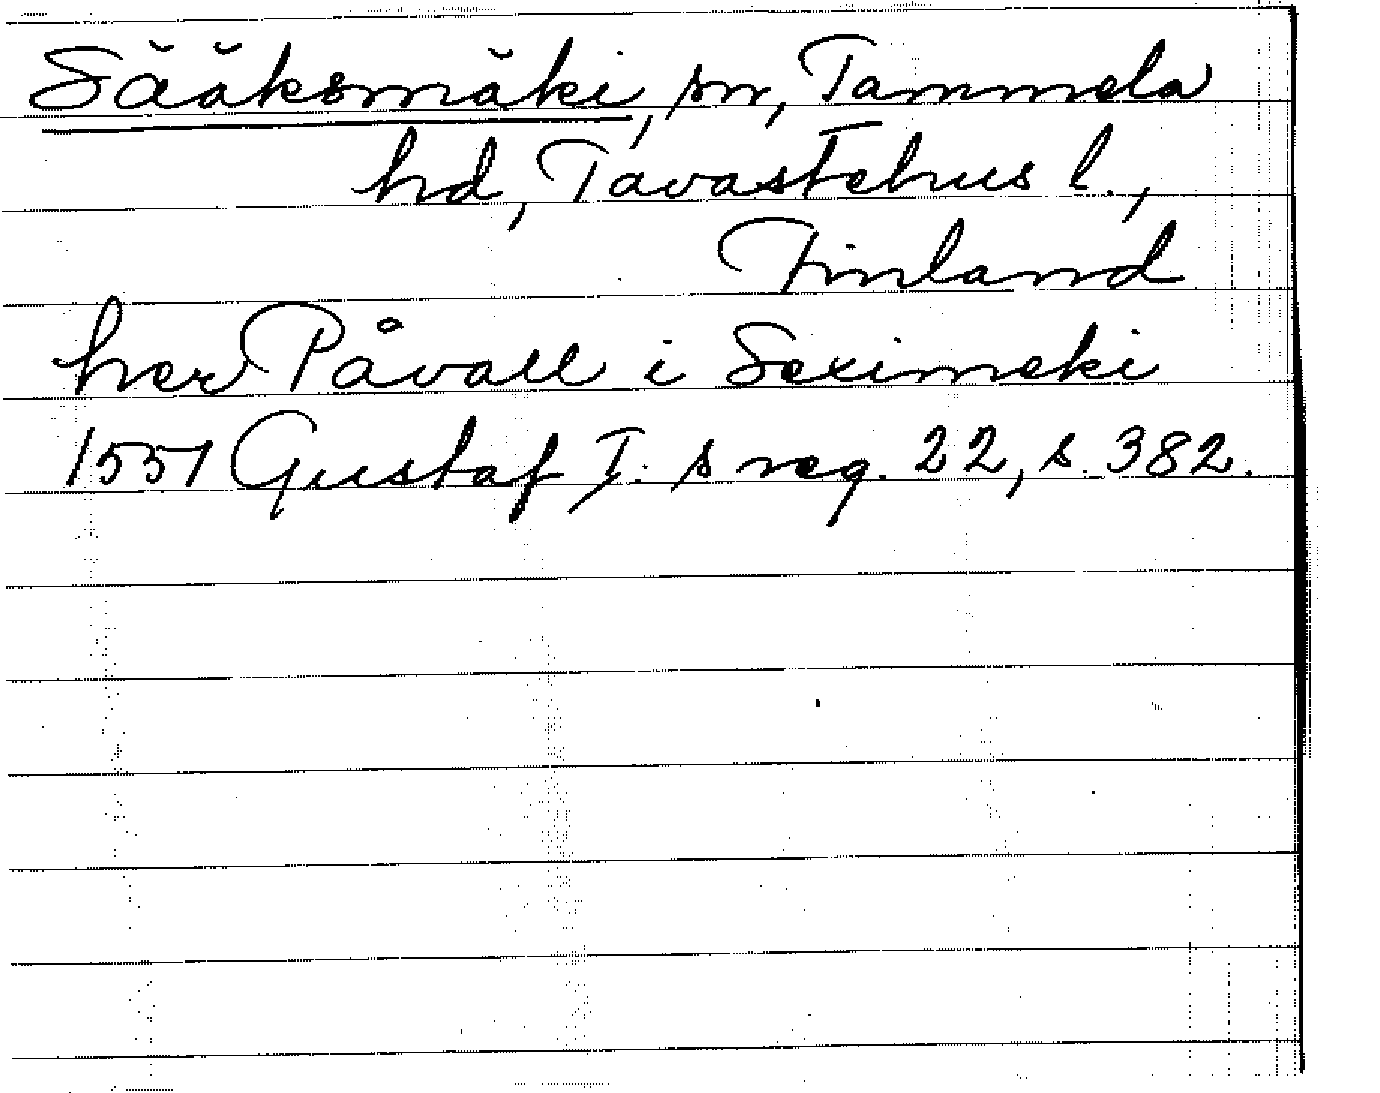 Sääksmäki, sn, Tammela
hd, Tavastehus l.,
Finland
her Påvall i Seximeki
1551 Gustaf I:s reg. 22, s. 382.